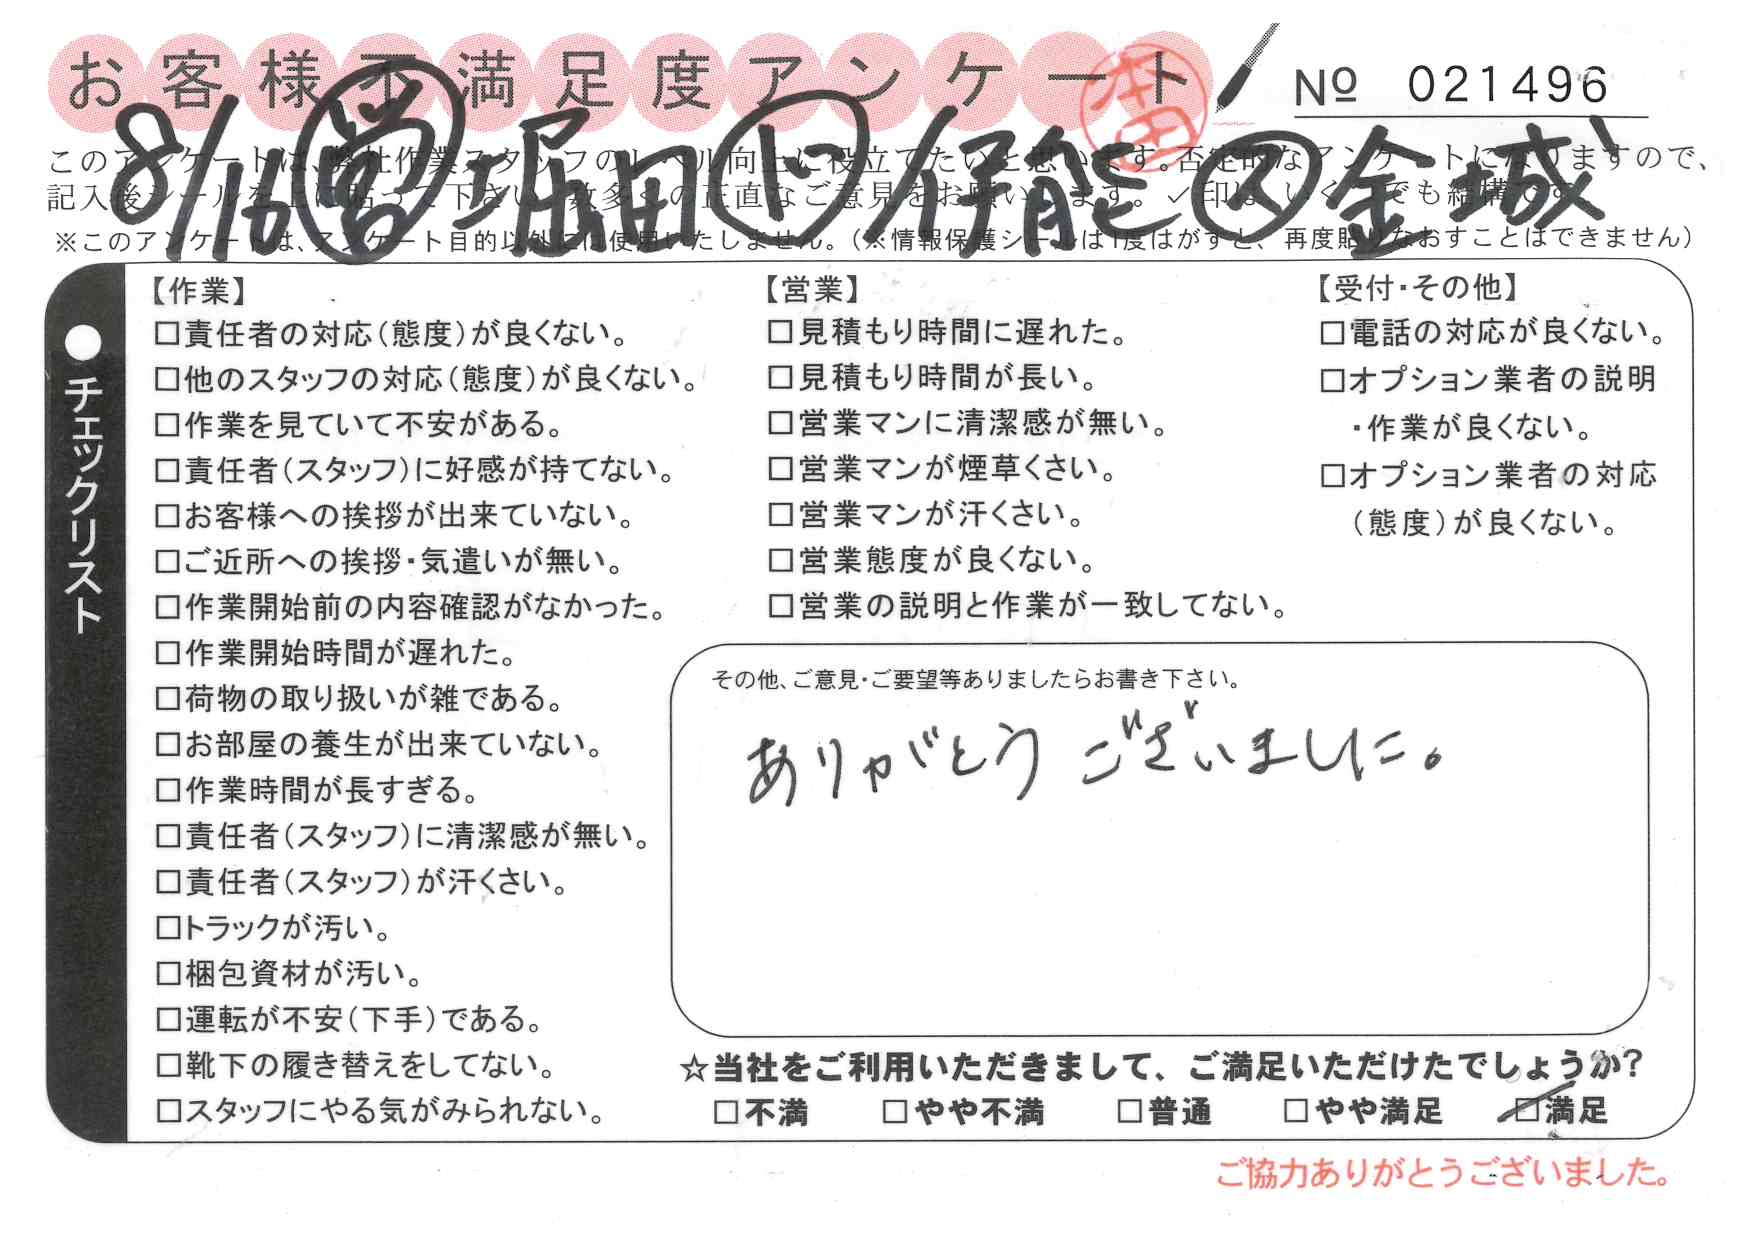 お客様不満足度アンケート
本田
№ 021496
8/16 営 堀田 ト 伊能 ス 金城
このアンケートは、弊社作業スタッフのレベル向上に役立てたいと思います。否定的なアンケートになりますので、
記入後シールを上に貼って下さい。数多くの正直なご意見をお願いします。✓印は、いくつでも結構です。
※このアンケートは、アンケート目的以外には使用いたしません。（※情報保護シールは1度はがすと、再度貼りなおすことはできません）
●チェックリスト
【作業】
□責任者の対応（態度）が良くない。
□他のスタッフの対応（態度）が良くない。
□作業を見ていて不安がある。
□責任者（スタッフ）に好感が持てない。
□お客様への挨拶が出来ていない。
□ご近所への挨拶・気遣いが無い。
□作業開始前の内容確認がなかった。
□作業開始時間が遅れた。
□荷物の取り扱いが雑である。
□お部屋の養生が出来ていない。
□作業時間が長すぎる。
□責任者（スタッフ）に清潔感が無い。
□責任者（スタッフ）が汗くさい。
□トラックが汚い。
□梱包資材が汚い。
□運転が不安（下手）である。
□靴下の履き替えをしてない。
□スタッフにやる気がみられない。
【営業】
□見積もり時間に遅れた。
□見積もり時間が長い。
□営業マンに清潔感が無い。
□営業マンが煙草くさい。
□営業マンが汗くさい。
□営業態度が良くない。
□営業の説明と作業が一致してない。
【受付・その他】
□電話の対応が良くない。
□オプション業者の説明
・作業が良くない。
□オプション業者の対応
（態度）が良くない。
その他、ご意見・ご要望等ありましたらお書き下さい。
ありがとうございました。
☆当社をご利用いただきまして、ご満足いただけたでしょうか？
□不満 □やや不満 □普通 □やや満足 ☑満足
ご協力ありがとうございました。